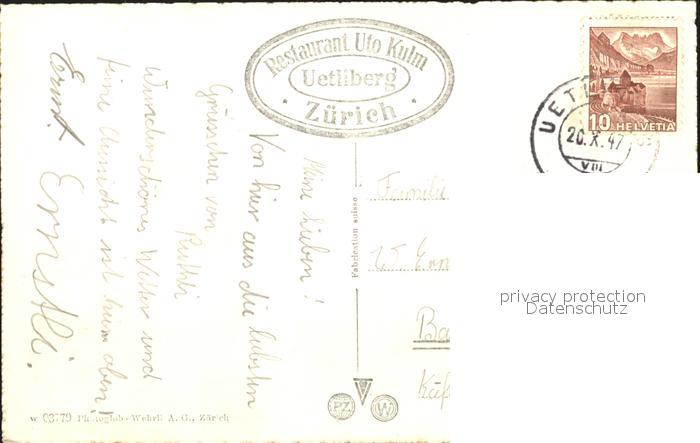 Restaurant Uto Kulm
Uetliberg
· Zürich ·
10 HELVETIA
UETLI
20.X.47
VIII
Meine Lieben!
Von hier aus die liebsten
Grüsschen von
Ruthli
Wunderschönes Wetter und
feine Aussicht ist hier oben!
Ernst.
Ernstli.
Fabrication suisse
Familie
W. Ern
Ba
PZ W
w 03779 Photoglob-Wehrli A. G., Zürich
privacy protection
Datenschutz